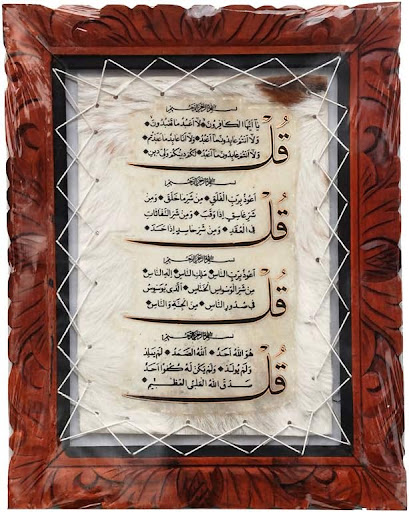 بسم الله الرحمن الرحيم
قُل
يَا أَيُّهَا الْكَافِرُونَ لَا أَعْبُدُ مَا تَعْبُدُونَ
وَلَا أَنتُمْ عَابِدُونَ مَا أَعْبُدُ وَلَا أَنَا عَابِدٌ مَا عَبَدتُّمْ
وَلَا أَنتُمْ عَابِدُونَ مَا أَعْبُدُ لَكُمْ دِينُكُمْ وَلِيَ دِينِ
بسم الله الرحمن الرحيم
قُل
أَعُوذُ بِرَبِّ الْفَلَقِ مِن شَرِّ مَا خَلَقَ وَمِن
شَرِّ غَاسِقٍ إِذَا وَقَبَ وَمِن شَرِّ النَّفَّاثَاتِ
فِي الْعُقَدِ وَمِن شَرِّ حَاسِدٍ إِذَا حَسَدَ
بسم الله الرحمن الرحيم
قُل
أَعُوذُ بِرَبِّ النَّاسِ مَلِكِ النَّاسِ إِلَهِ النَّاسِ
مِن شَرِّ الْوَسْوَاسِ الْخَنَّاسِ الَّذِي يُوَسْوِسُ
فِي صُدُورِ النَّاسِ مِنَ الْجِنَّةِ وَالنَّاسِ
بسم الله الرحمن الرحيم
قُل
هُوَ اللَّهُ أَحَدٌ اللَّهُ الصَّمَدُ لَمْ يَلِدْ
وَلَمْ يُولَدْ وَلَمْ يَكُن لَهُ كُفُوًا أَحَدٌ
صَدَقَ اللَّهُ الْعَلِيُّ الْعَظِيمُ